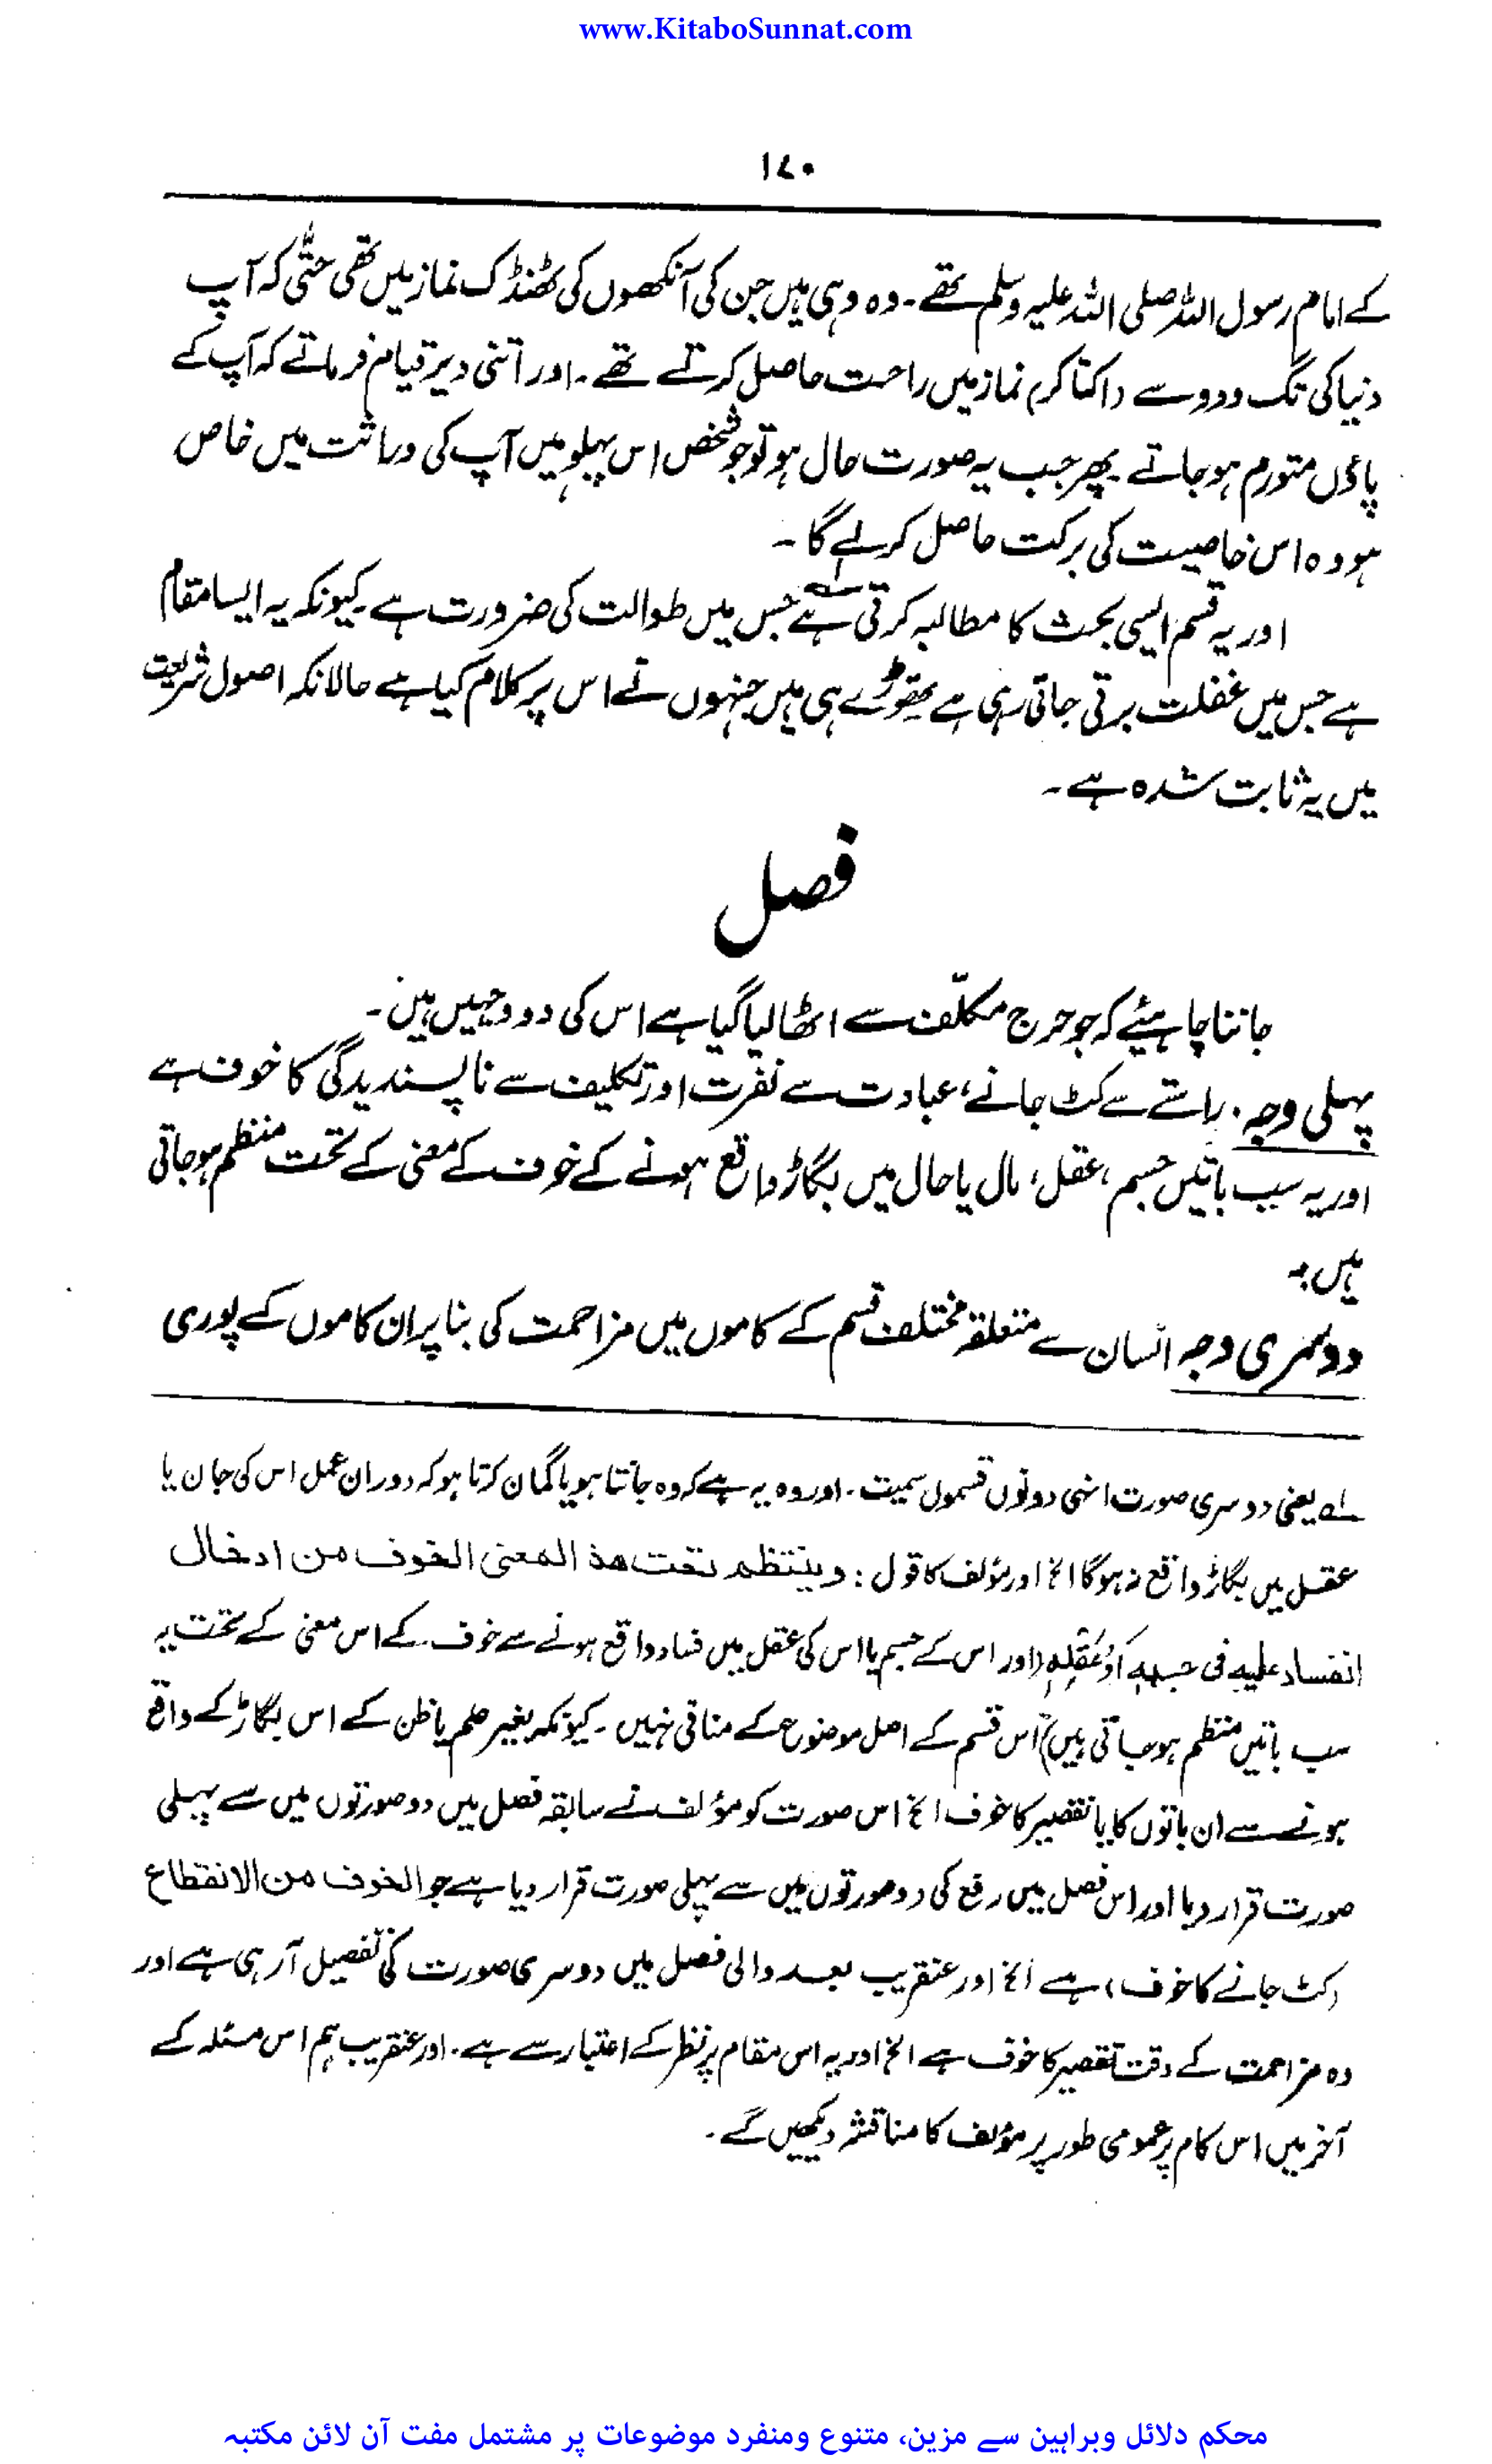 www.KitaboSunnat.com
۱۷۰
کے امام رسول اللہ صلی اللہ علیہ وسلم تھے۔ وہ وہی ہیں جن کی آنکھوں کی ٹھنڈک نماز میں تھی حتّٰی کہ آپ
دنیا کی تگ ودو سے اکتا کر نماز میں راحت حاصل کرتے تھے۔ اور اتنی دیر قیام فرماتے کہ آپ کے
پاؤں متورم ہو جاتے۔ پھر جب یہ صورت حال ہو تو جو شخص اس پہلو میں آپ کی وراثت میں خاص
ہو وہ اس خاصیت کی برکت حاصل کرلے گا۔
اور یہ قسم ایسی بحث کا مطالبہ کرتی ہے لہ جس میں طوالت کی ضرورت ہے۔ کیونکہ یہ ایسا مقام
ہے جس میں غفلت برتی جاتی رہی ہے تھوڑے ہی ہیں جنہوں نے اس پر کلام کیا ہے حالانکہ اصول شریعت
میں یہ ثابت شدہ ہے۔
فصل
جاننا چاہیئے کہ جو حرج مکلّف سے اٹھا لیا گیا ہے اس کی دو وجہیں ہیں۔
پہلی وجہ۔ راستے سے کٹ جانے، عبادت سے نفرت اور تکلیف سے ناپسندیدگی کا خوف ہے
اور یہ سب باتیں جسم، عقل، مال یا حال میں بگاڑ واقع ہونے کے خوف کے معنی کے تحت منظم ہو جاتی
ہیں۔
دوسری وجہ انسان سے متعلقہ مختلف قسم کے کاموں میں مزاحمت کی بنا پر ان کاموں کے پوری
لہ یعنی دوسری صورت انہی دونوں قسموں سمیت۔ اور وہ یہ ہے کہ وہ جانتا ہو یا گمان کرتا ہو کہ دوران عمل اس کی جان یا
عقل میں بگاڑ واقع نہ ہوگا الخ اور مؤلف کا قول: وینتظم تحت هذ المعنی الخوف من ادخال
الفساد علیه فی جسمِهِ اَوْ عَقْلِهِ (اور اس کے جسم یا اس کی عقل میں فساد واقع ہونے سے خوف کے اس معنی کے تحت یہ
سب باتیں منظم ہو جاتی ہیں) اس قسم کے اصل موضوع کے منافی نہیں۔ کیونکہ بغیر علم یا ظن کے اس بگاڑ کے واقع
ہونے سے ان باتوں کا یا تقصیر کا خوف الخ اس صورت کو مؤلف نے سابقہ فصل میں دو صورتوں میں سے پہلی
صورت قرار دیا اور اس فصل میں رفع کی دو صورتوں میں سے پہلی صورت قرار دیا ہے جو الخوف من الانقطاع
(کٹ جانے کا خوف) ہے الخ اور عنقریب بعد والی فصل میں دوسری صورت کی تفصیل آرہی ہے اور
وہ مزاحمت کے وقت تقصیر کا خوف ہے الخ اور یہ اس مقام پر نظر کے اعتبار سے ہے۔ اور عنقریب ہم اس مسئلہ کے
آخر میں اس کام پر عمومی طور پر مؤلف کا مناقشہ دیکھیں گے۔
محکم دلائل وبراہین سے مزین، متنوع ومنفرد موضوعات پر مشتمل مفت آن لائن مکتبہ